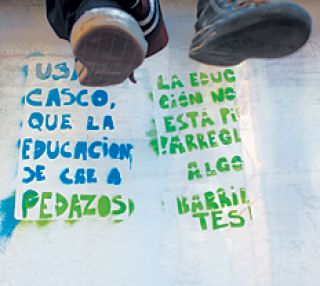 USA
CASCO,
QUE LA
EDUCACION
SE CAE A
PEDAZOS
LA EDUC
CIÓN NO
ESTÁ P
ARREGL
ALGO
BARRIL
TES